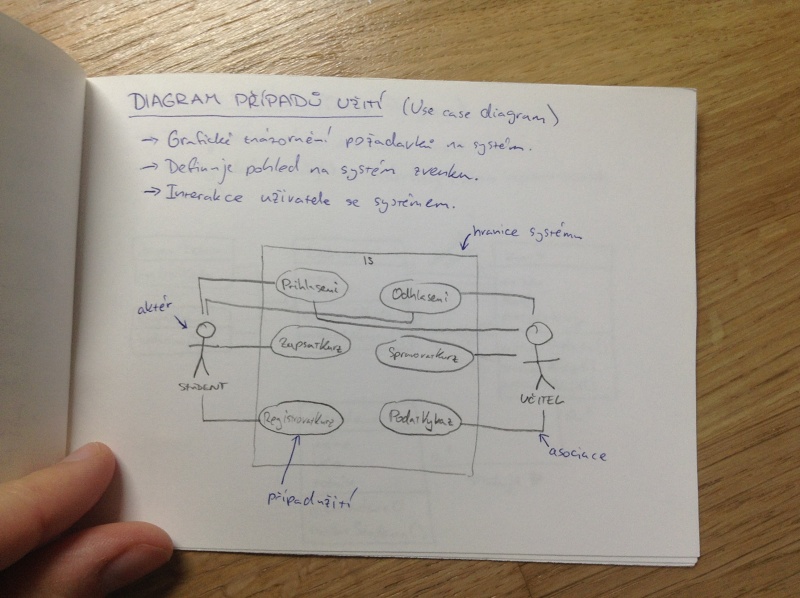 DIAGRAM PŘÍPADŮ UŽITÍ (Use case diagram)
→ Grafické znázornění požadavků na systém.
→ Definuje pohled na systém zvenku.
→ Interakce uživatele se systémem.
hranice systému
IS
Prihlaseni
Odhlaseni
aktér
ZapsatKurz
SpravovatKurz
STUDENT
UČITEL
RegistrovatKurz
asociace
případ užití